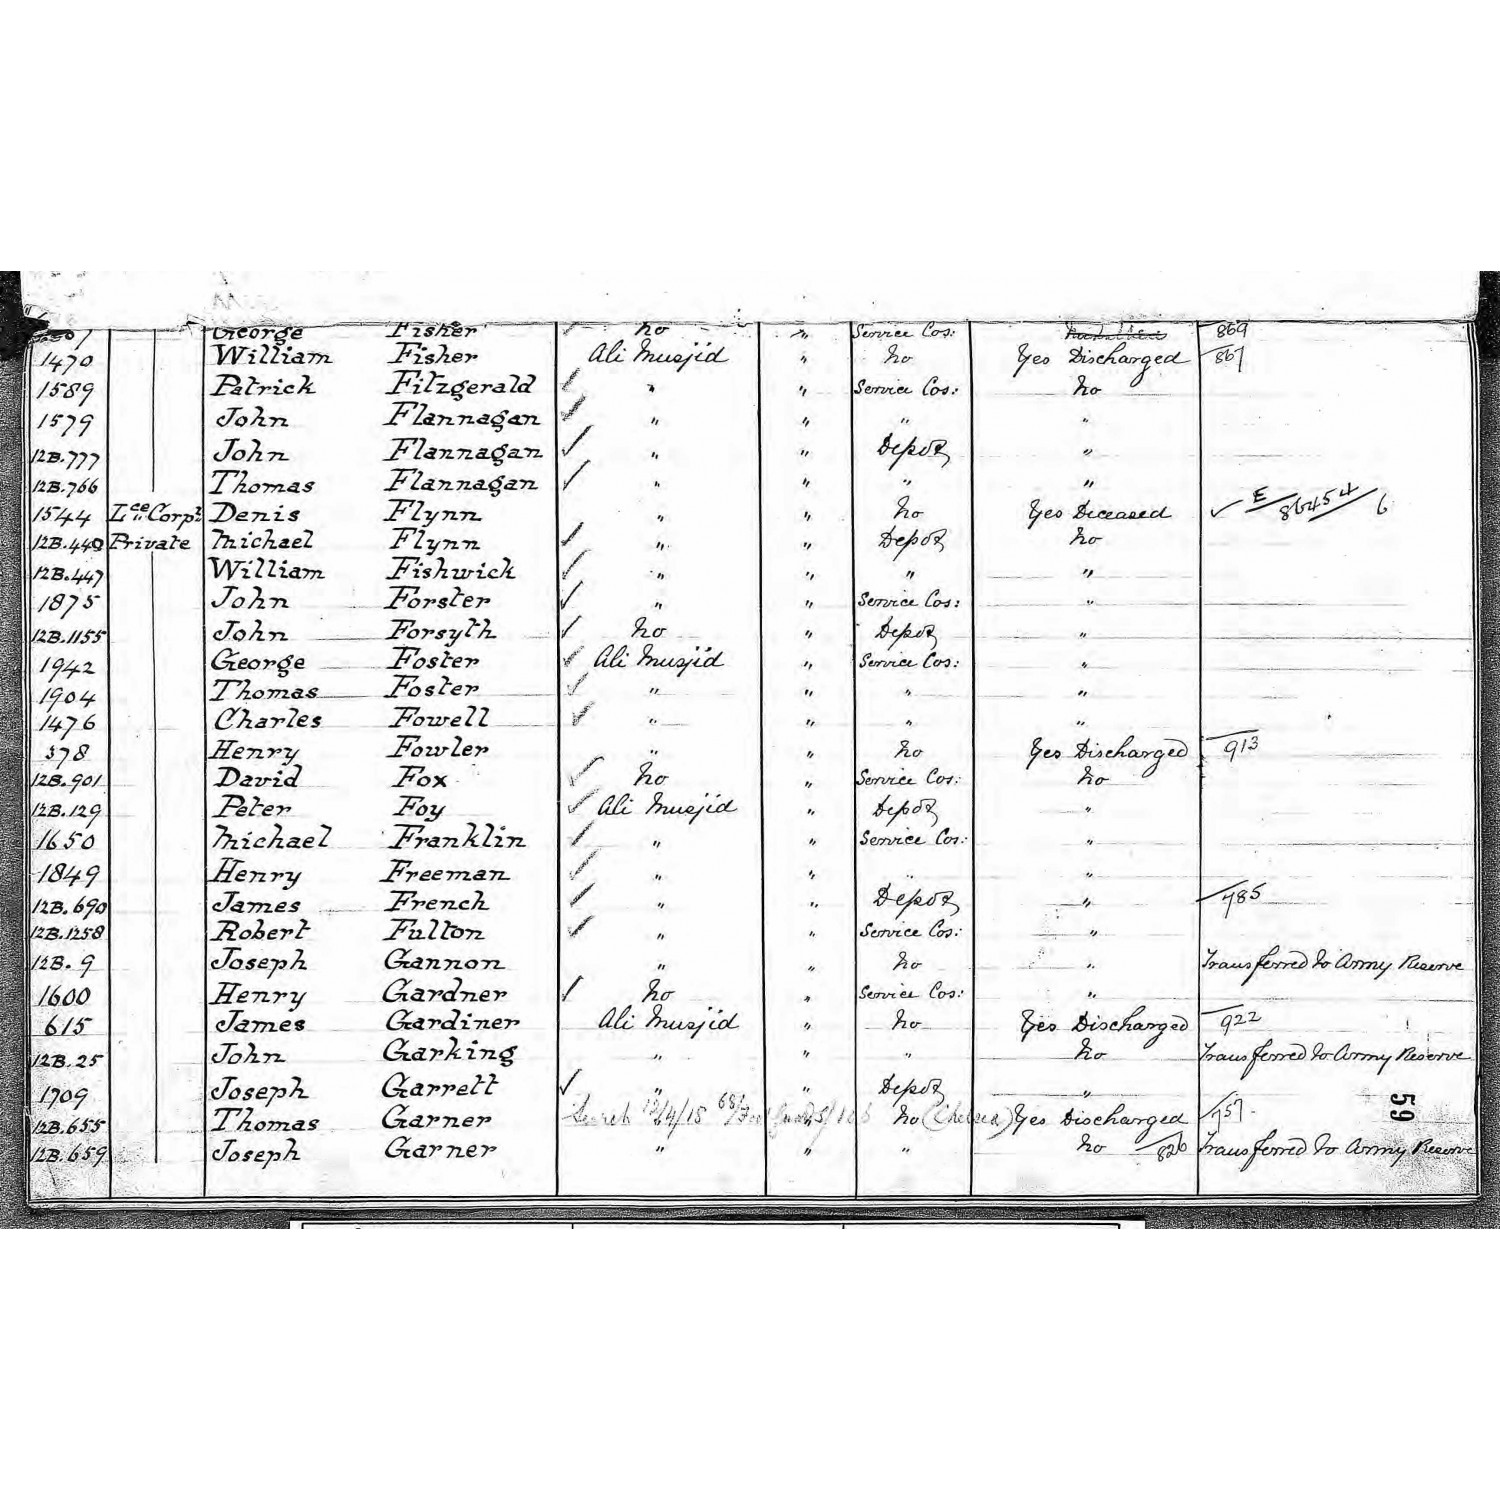 George Fisher no " Service Cos: 869
1470 William Fisher Ali Musjid " No Yes Discharged 867
1589 Patrick Fitzgerald ✓ " " Service Cos: No
1579 John Flannagan ✓ " " " "
12B.777 John Flannagan ✓ " " Depot "
12B.766 Thomas Flannagan ✓ " " " "
1544 Lce Corpl Denis Flynn " " No Yes Deceased ✓ E/86454/6
12B.440 Private Michael Flynn ✓ " " Depot No
12B.447 William Fishwick ✓ " " " "
1875 John Forster ✓ " " Service Cos: "
12B.1155 John Forsyth ✓ No " Depot "
1942 George Foster ✓ Ali Musjid " Service Cos: "
1904 Thomas Foster ✓ " " " "
1476 Charles Fowell ✓ " " " "
378 Henry Fowler " " No Yes Discharged 913
12B.901 David Fox ✓ No " Service Cos: No
12B.129 Peter Foy ✓ Ali Musjid " Depot "
1650 Michael Franklin ✓ " " Service Cos: "
1849 Henry Freeman ✓ " " " "
12B.690 James French ✓ " " Depot " 785
12B.1258 Robert Fulton ✓ " " Service Cos: "
12B.9 Joseph Gannon " " No " Transferred to Army Reserve
1600 Henry Gardner ✓ No " Service Cos: "
615 James Gardiner Ali Musjid " No Yes Discharged 922
12B.25 John Garking " " " No Transferred to Army Reserve
1709 Joseph Garrett ✓ " " Depot "
12B.655 Thomas Garner Search 12/4/15 No (Chelsea) Yes Discharged 757
12B.659 Joseph Garner " " " No 826 Transferred to Army Reserve
59